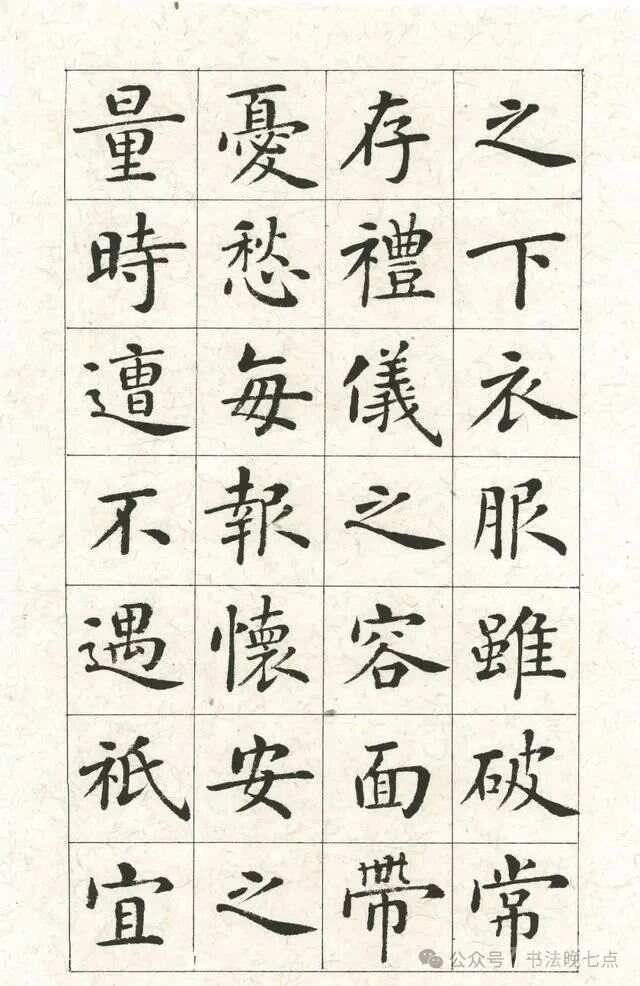 之下衣服雖破常
存禮儀之容面帶
憂愁每報懷安之
量時遭不遇祇宜
公众号 / 书法晚七点